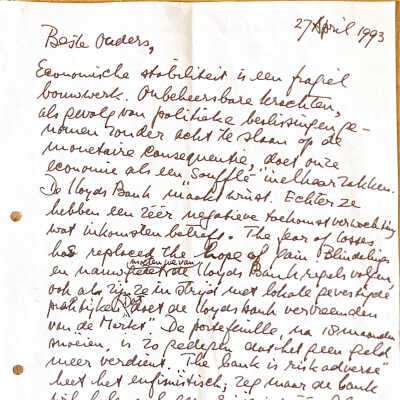 27 April 1993
Beste Ouders,
Economische stabiliteit is een fragiel
bouwwerk. Onbeheersbare krachten,
als gevolg van politieke beslissingen ge-
nomen zonder acht te slaan op de
monetaire consequentie, doet onze
economie als een "Soufflé" in elkaar zakken.
De Lloyds Bank maakt winst. Echter ze
hebben een zéér negatieve toekomst verwachting
wat inkomsten betreft. The fear of losses
has replaced the hope of gain. Blindelings
en nauwgezet moeten we van de Lloyds Bank regels volgen,
ook als zijn ze in strijd met lokale gevestigde
praktijken. Dat doet de Lloyds bank vervreemden
van de Markt. De portefeuille, na 18 maanden
snoeien, is zo gedegen dat het geen geld
meer verdient. "The bank is risk adverse"
heet het eufimistisch; zeg maar de bank